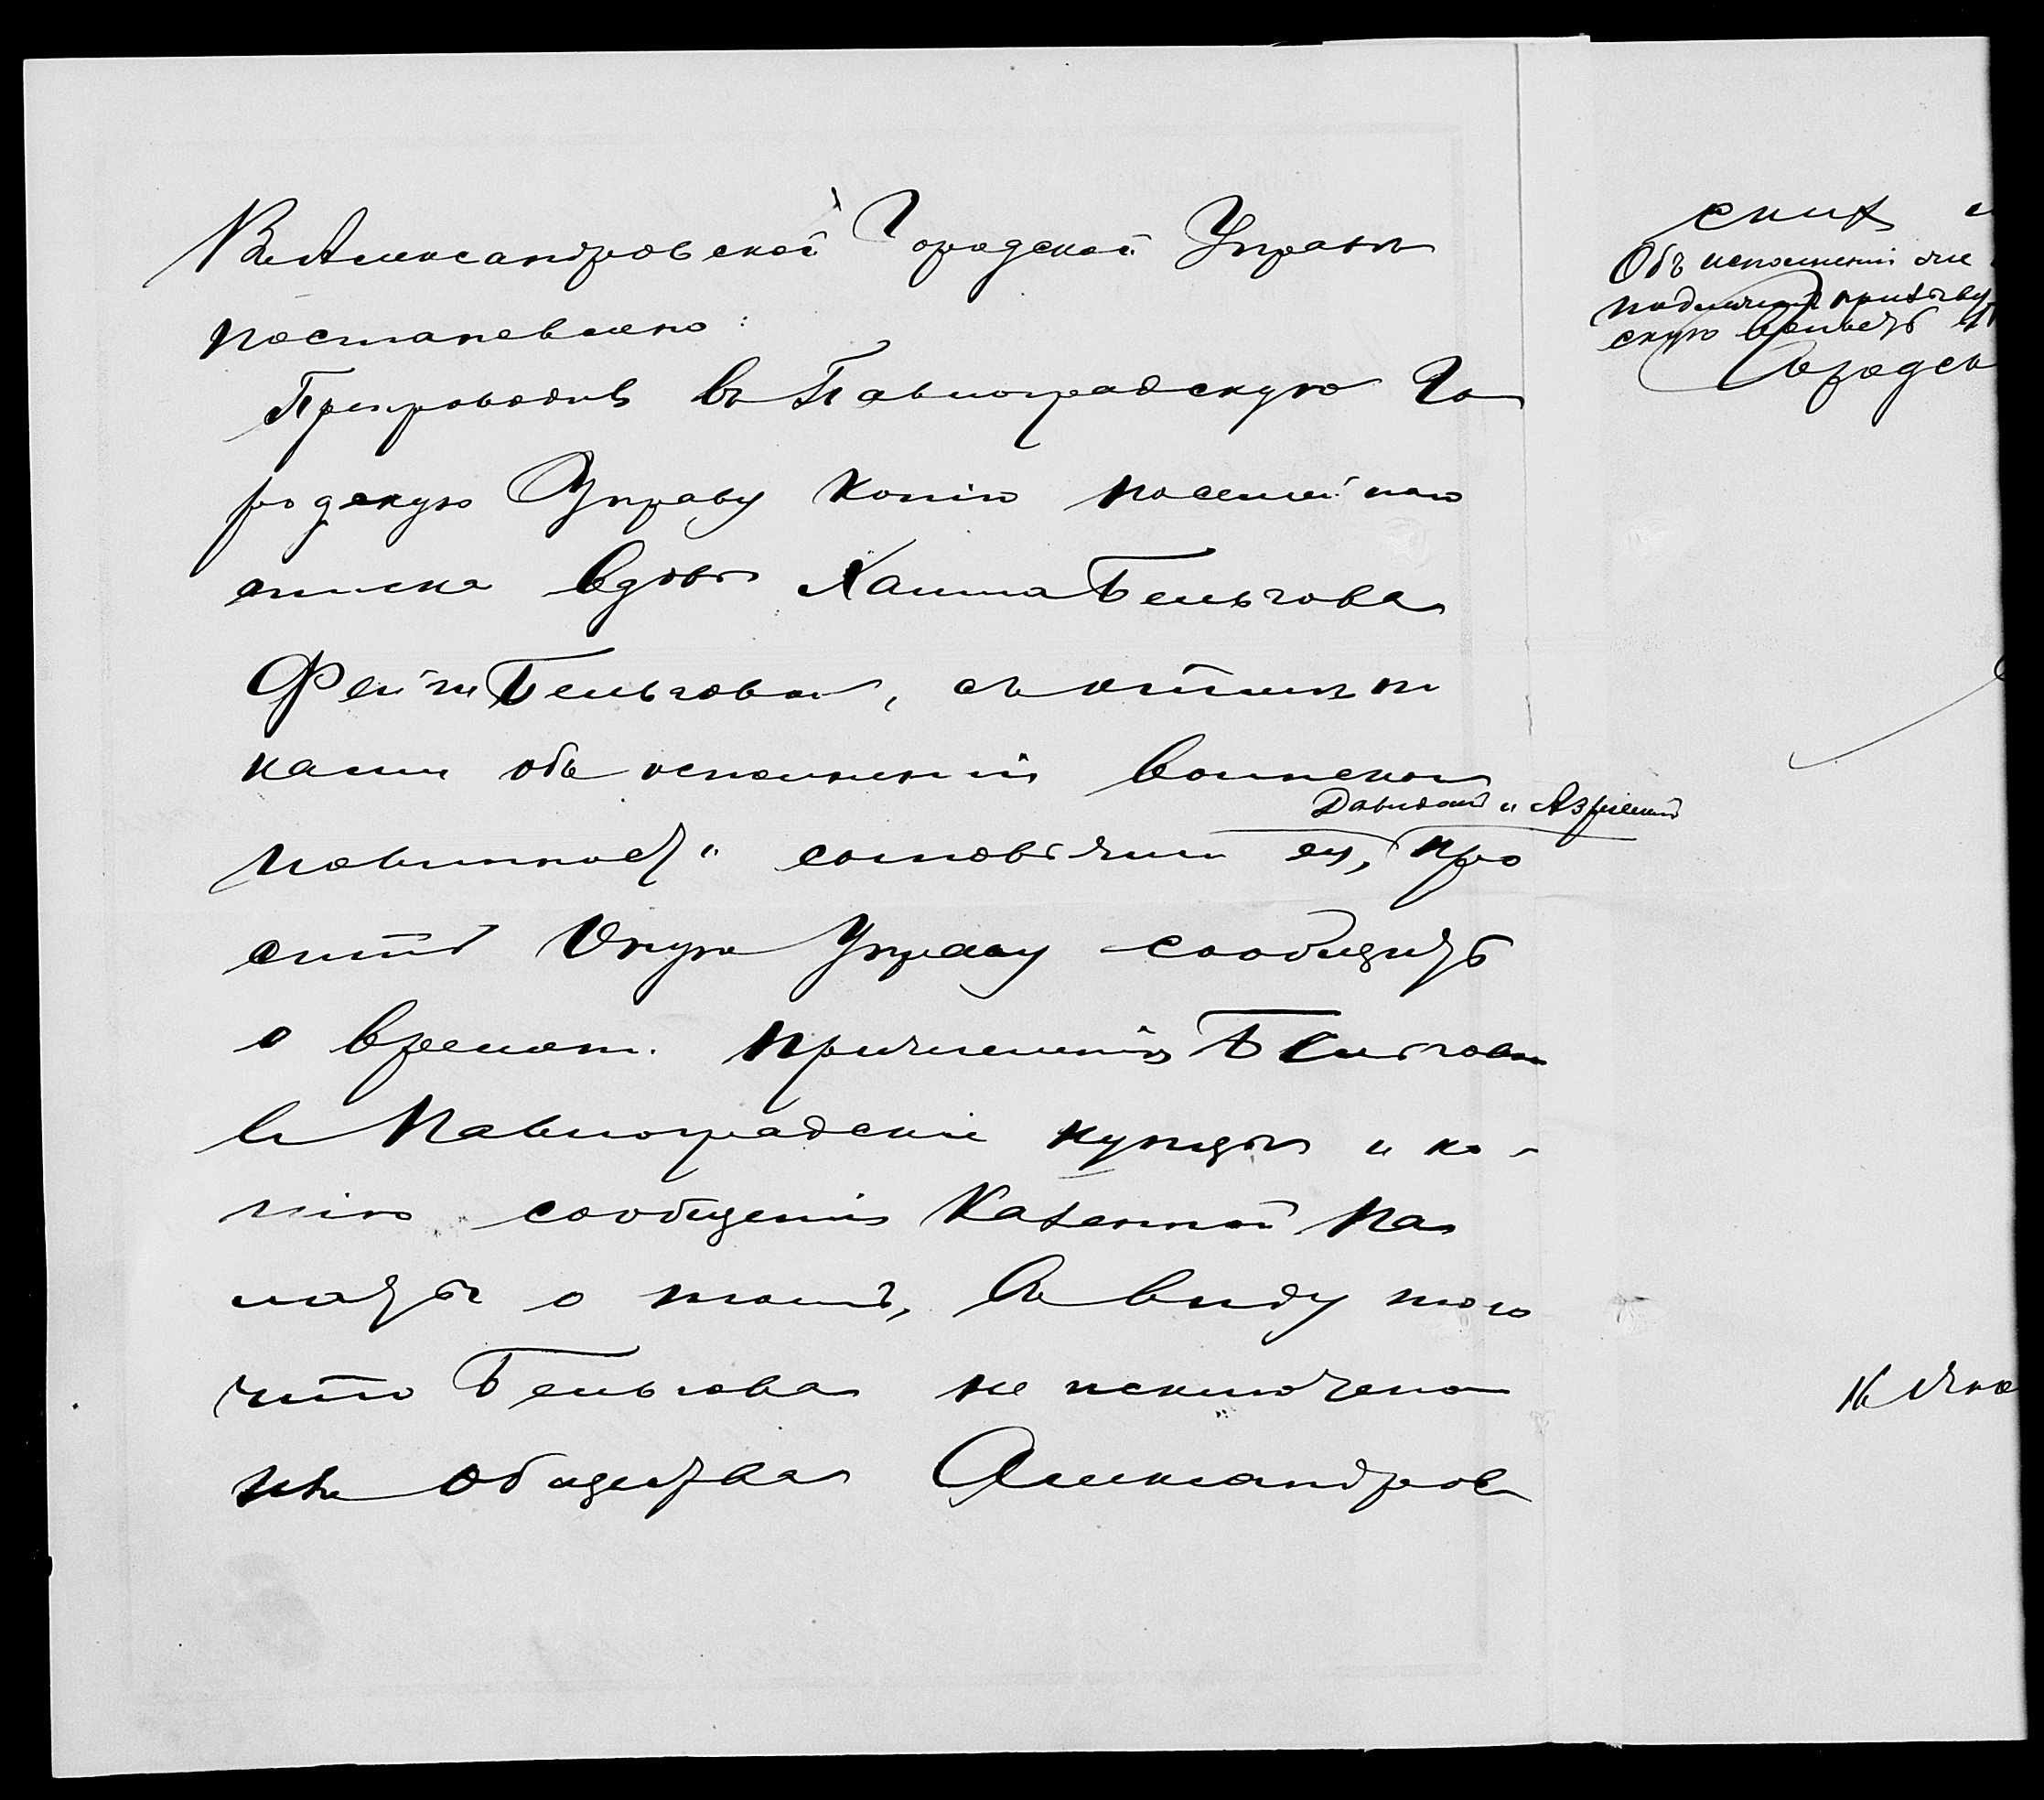 Въ Александровской Городской Управѣ
постановлено:
Препроводивъ въ Павлоградскую Го
родскую Управу копію посемейнаго
списка вдовы Хаима Бельгова
Фейги Бельговой, съ отмѣт
ками объ исполненіи воинской
Давидомъ и Азріелемъ
повинности сыновьями ея, про
ситъ Оную Управу сообщить
о времени причисленія Бельговой
въ Павлоградскіе купцы и ко-
пію сообщенія Казенной Па
латы о томъ, въ виду того
что Бельгова не исключена
изъ общества Александров
скихъ
Объ исполненіи
подлежит призыву
скую
Городск